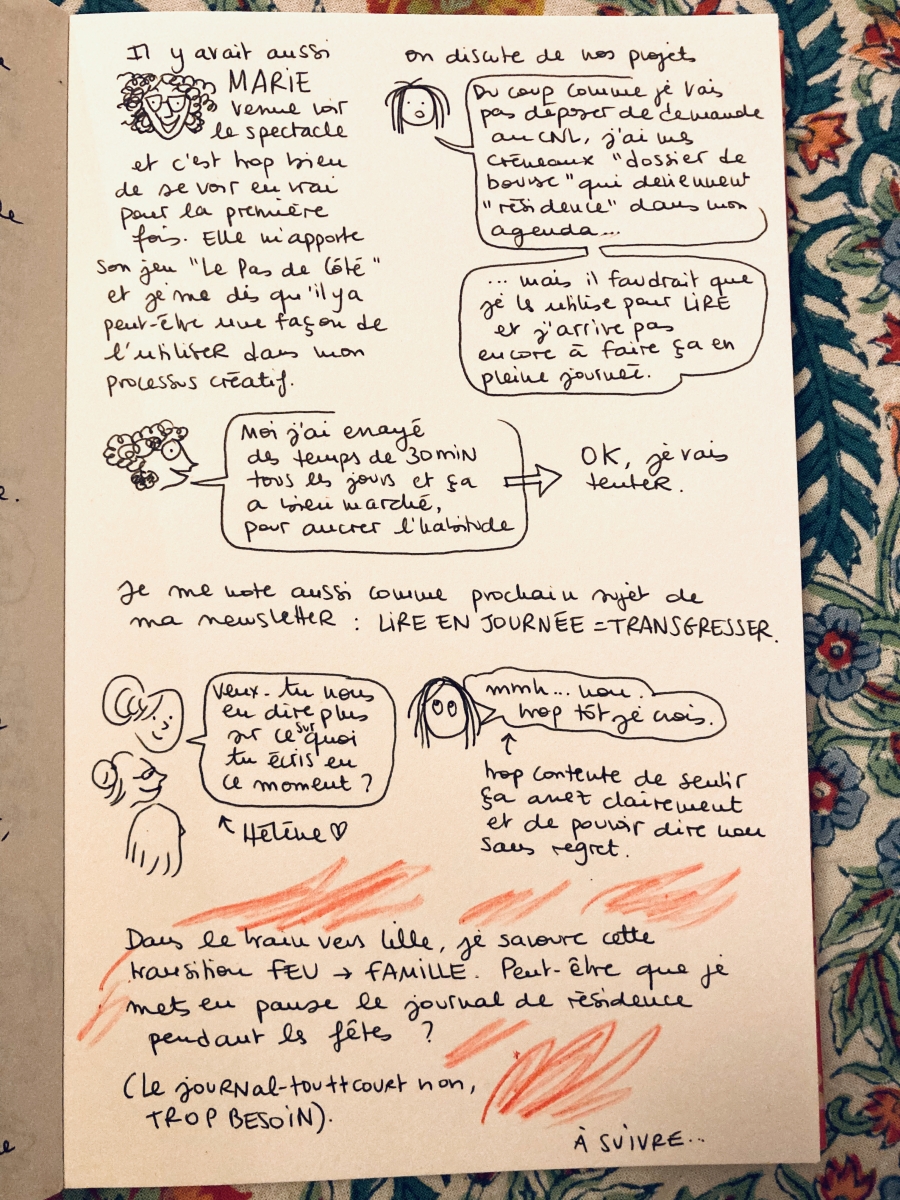 Il y avait aussi
MARIE
venue voir
le spectacle
et c'est trop bien
de se voir en vrai
pour la première
fois. Elle m'apporte
son jeu "Le Pas de Côté"
et je me dis qu'il y a
peut-être une façon de
l'utiliser dans mon
processus créatif.
on discute de nos projets
Du coup comme je vais
pas déposer de demande
au CNL, j'ai mes
créneaux "dossier de
bourse" qui deviennent
"résidence" dans mon
agenda...
... mais il faudrait que
je les utilise pour LIRE
et j'arrive pas
encore à faire ça en
pleine journée.
Moi j'ai essayé
des temps de 30 min
tous les jours et ça
a bien marché,
pour ancrer l'habitude
OK, je vais
tenter.
Je me note aussi comme prochain sujet de
ma newsletter : LIRE EN JOURNÉE = TRANSGRESSER.
Veux-tu nous
en dire plus
sur ce sur quoi
tu écris en
ce moment ?
Hélène ♡
mmh... non.
trop tôt je crois.
trop contente de sentir
ça assez clairement
et de pouvoir dire non
sans regret.
Dans le train vers Lille, je savoure cette
transition FEU → FAMILLE. Peut-être que je
mets en pause le journal de résidence
pendant les fêtes ?
(Le journal-tout court non,
TROP BESOIN).
À SUIVRE...